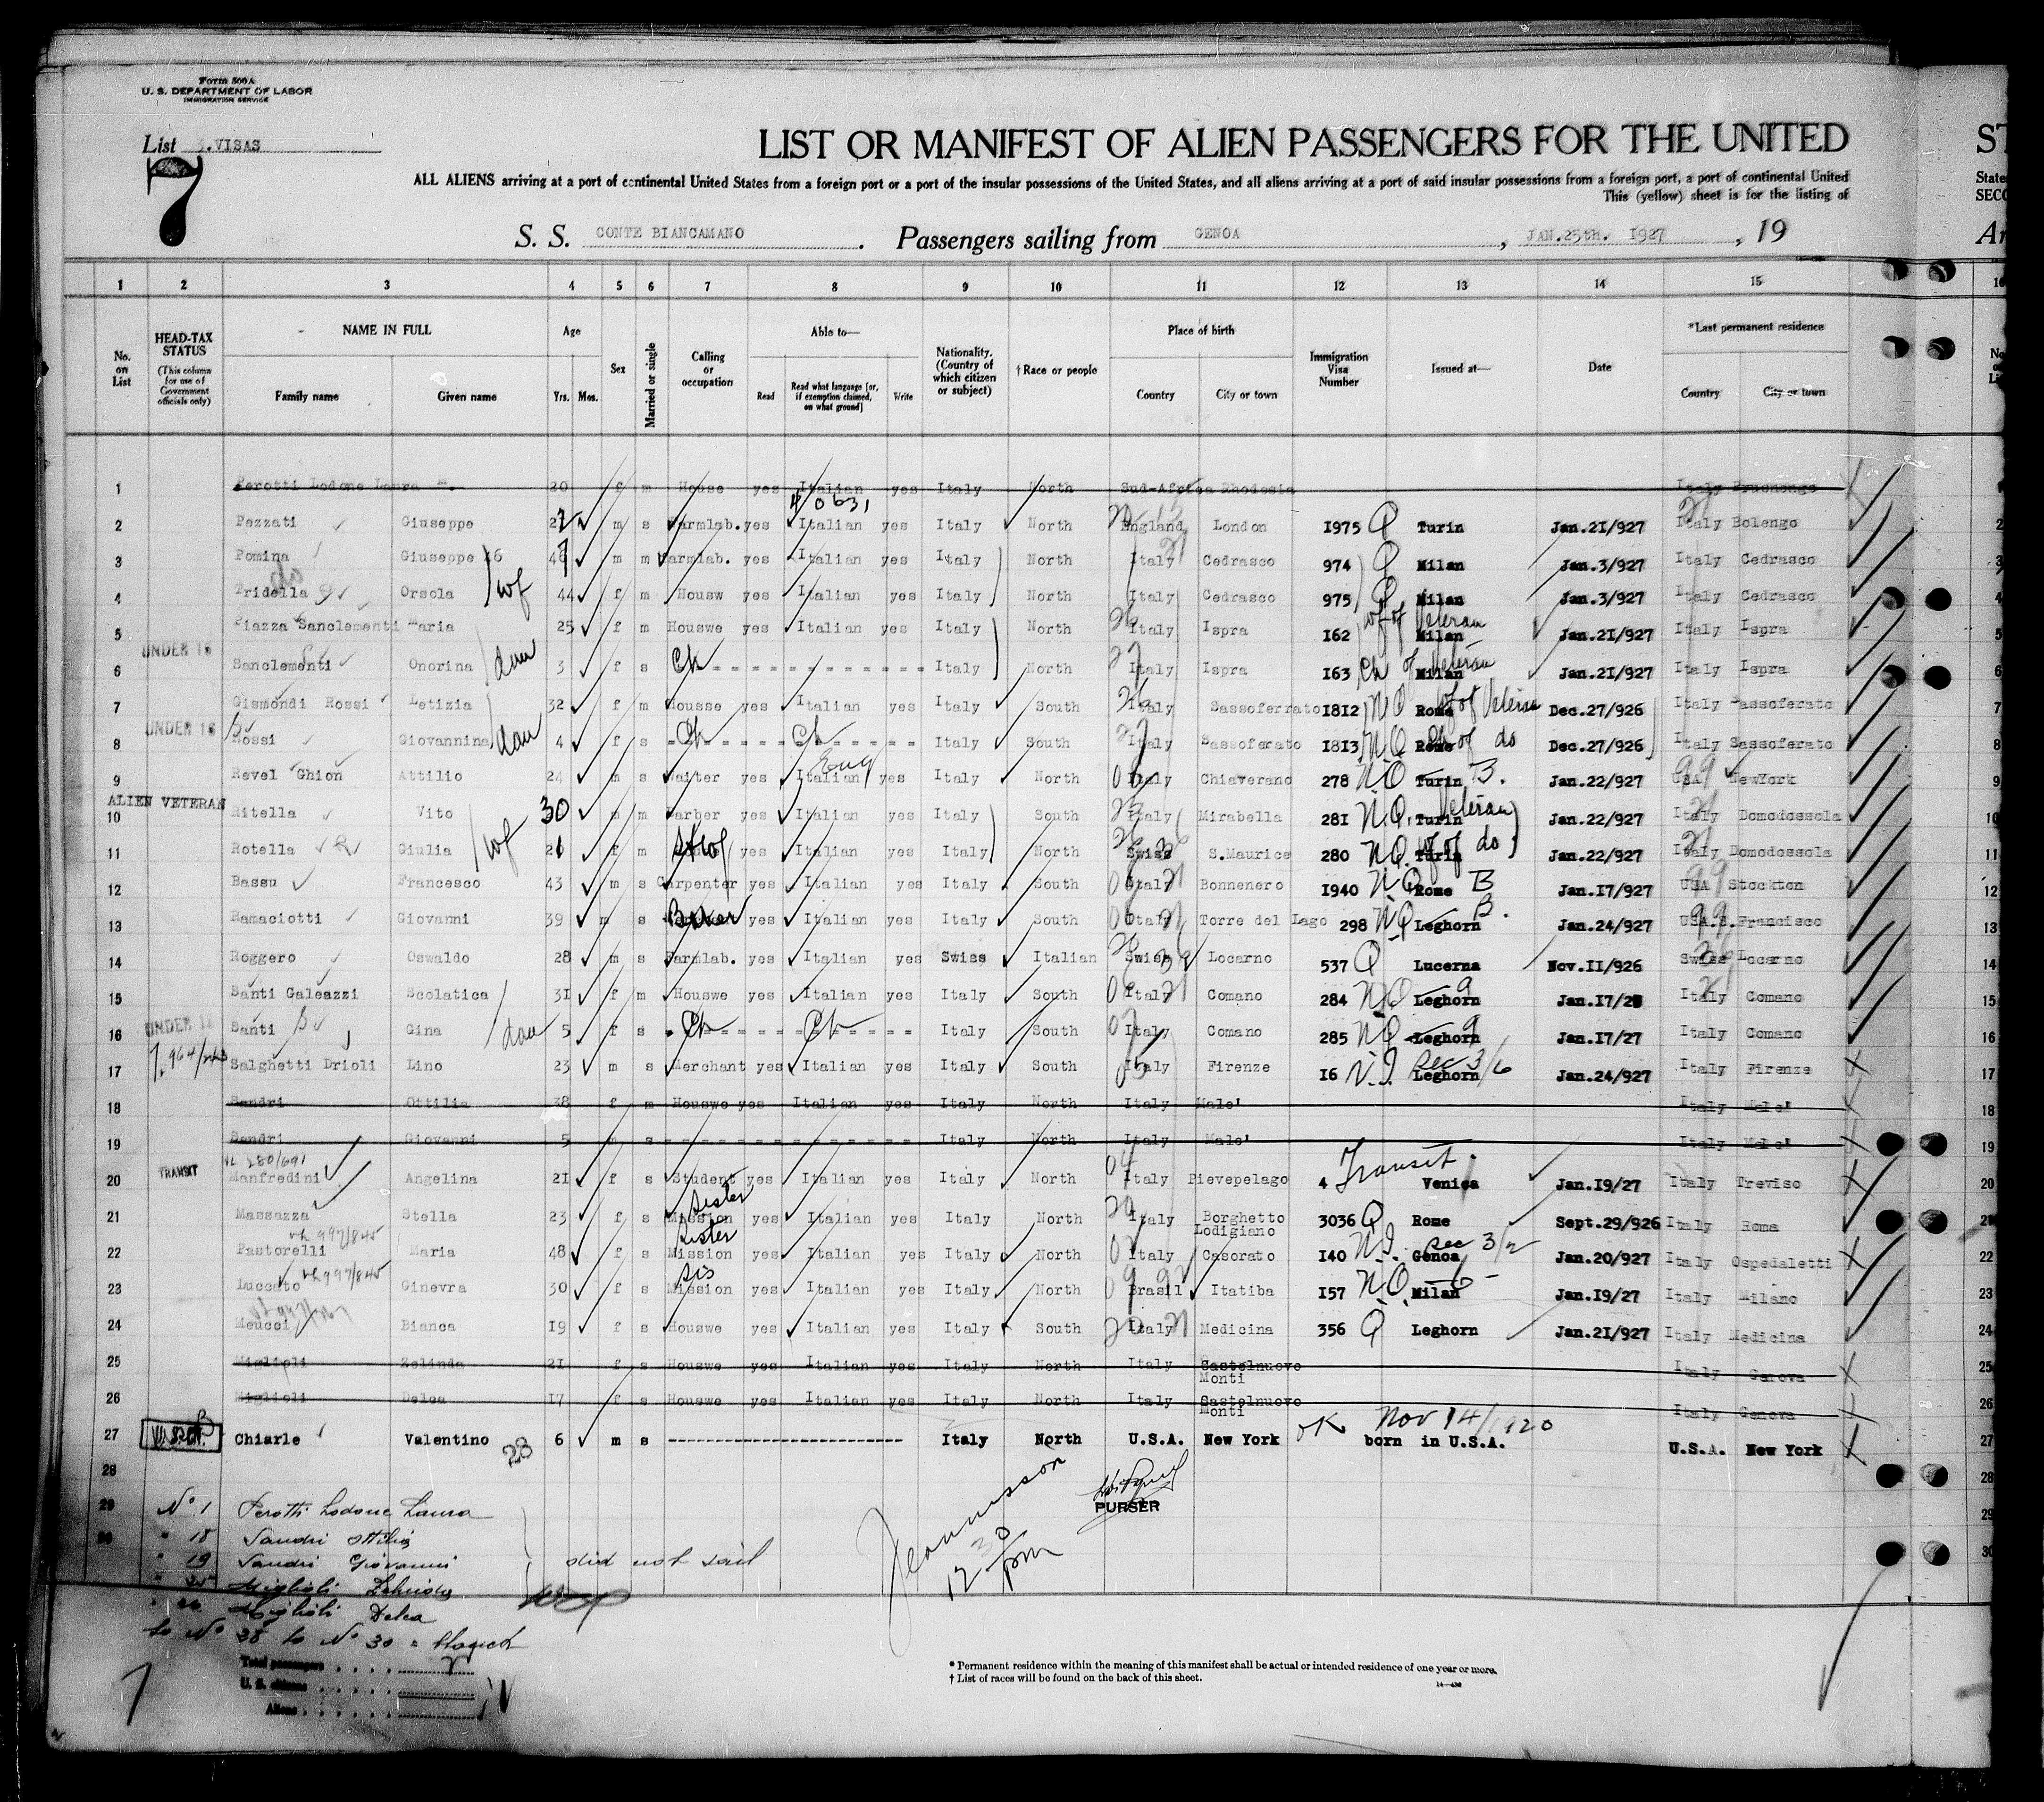 Form 500 A
U. S. DEPARTMENT OF LABOR
IMMIGRATION SERVICE
List VISAS
7
LIST OR MANIFEST OF ALIEN PASSENGERS FOR THE UNITED
ALL ALIENS arriving at a port of continental United States from a foreign port or a port of the insular possessions of the United States, and all aliens arriving at a port of said insular possessions from a foreign port, a port of continental United
This (yellow) sheet is for the listing of
S. S. CONTE BIANCAMANO . Passengers sailing from GENOA , JAN.25th. 1927 , 19
1 2 3 4 5 6 7 8 9 10 11 12 13 14 15
No. on List
HEAD-TAX STATUS (This column for use of Government officials only)
NAME IN FULL Family name Given name
Age Yrs. Mos.
Sex
Married or single
Calling or occupation
Able to— Read Read what language [or, if exemption claimed, on what ground] Write
Nationality. (Country of which citizen or subject)
† Race or people
Place of birth Country City or town
Immigration Visa Number
Issued at—
Date
*Last permanent residence Country City or town
1 Perotti Lodone Laura m. 20 f m House yes Italian yes Italy North Sud-Africa Rhodesia Italy Bruchengo
2 Pezzati Giuseppe 27 m s Farmlab. yes Italian yes Italy North England London 1975 Q Turin Jan.21/927 Italy Bolengo
3 Pomina Giuseppe 46 m m Farmlab. yes Italian yes Italy North Italy Cedrasco 974 Q Milan Jan.3/927 Italy Cedrasco
4 Tridella Orsola wf 44 f m Housw yes Italian yes Italy North Italy Cedrasco 975 Q Milan Jan.3/927 Italy Cedrasco
5 Piazza Sanclementi Maria 25 f m Houswe yes Italian yes Italy North Italy Ispra 162 wf of Veteran Milan Jan.21/927 Italy Ispra
UNDER 16
6 Sanclementi Onorina dau 3 f s Ch Italy North Italy Ispra 163 Ch of Veteran Milan Jan.21/927 Italy Ispra
7 Gismondi Rossi Letizia 32 f m Housse yes Italian yes Italy South Italy Sassoferrato 1812 N Q Rome wf of Veteran Dec.27/926 Italy Sassoferato
UNDER 16
8 Rossi Giovannina dau 4 f s Ch Ch Italy South Italy Sassoferato 1813 N Q Rome Ch of do Dec.27/926 Italy Sassoferato
9 Revel Ghion Attilio 24 m s Waiter yes Italian Eng yes Italy North Italy Chiaverano 278 N Q Turin B. Jan.22/927 USA NewYork
ALIEN VETERAN
10 Ritella Vito 30 m m Barber yes Italian yes Italy South Italy Mirabella 281 N.Q. Turin Veteran Jan.22/927 Italy Domodossola
11 Rotella Giulia wf 21 f m Hswf yes Italian yes Italy North Swiss S.Maurice 280 N Q. Turin wf of do Jan.22/927 Italy Domodossola
12 Bassu Francesco 43 m s Carpenter yes Italian yes Italy South Italy Bonnenero 1940 N Q Rome B Jan.17/927 USA Stockton
13 Ramaciotti Giovanni 39 m s Baker yes Italian yes Italy South Italy Torre del Lago 298 N Q Leghorn B. Jan.24/927 USA.S.Francisco
14 Roggero Oswaldo 28 m s Farmlab. yes Italian yes Swiss Italian Swiss Locarno 537 Q Lucerna Nov.11/926 Swiss Locarno
15 Santi Galeazzi Scolatica 31 f m Houswe yes Italian yes Italy South Italy Comano 284 N Q Leghorn 9 Jan.17/27 Italy Comano
UNDER 16
16 Santi Gina dau 5 f s Ch Ch Italy South Italy Comano 285 N Q Leghorn 9 Jan.17/27 Italy Comano
17 Salghetti Drioli Lino 23 m s Merchant yes Italian yes Italy South Italy Firenze 16 N.I. Sec 3/6 Leghorn Jan.24/927 Italy Firenze
18 Sandri Ottilia 38 f m Houswe yes Italian yes Italy North Italy Male' Italy Male'
19 Sandri Giovanni 5 m s Italy North Italy Male' Italy Male'
VL 280/691
20 TRANSIT Manfredini Angelina 21 f s Student yes Italian yes Italy North Italy Pievepelago 4 Transit. Venica Jan.19/27 Italy Treviso
21 Massazza Stella 23 f s Sister Mission yes Italian yes Italy North Italy Borghetto Lodigiano 3036 Q Rome Sept.29/926 Italy Roma
22 Pastorelli Maria 48 f s Sister Mission yes Italian yes Italy North Italy Casorato 140 N.I. Sec 3/2 Genoa Jan.20/927 Italy Ospedaletti
23 Luccato Ginevra 30 f s Sis Mission yes Italian yes Italy North Brasil Itatiba 157 N.Q. Milan Jan.19/27 Italy Milano
24 Meucci Bianca 19 f s Houswe yes Italian yes Italy South Italy Medicina 356 Q Leghorn Jan.21/927 Italy Medicina
25 Miglioli Zelinda 21 f s Houswe yes Italian yes Italy North Italy Castelnuovo Monti Italy Genova
26 Miglioli Delca 17 f s Houswe yes Italian yes Italy North Italy Castelnuovo Monti Italy Genova
27 Chiarle Valentino 6 m s Italy North U.S.A. New York OK Nov 14/1920 born in U.S.A. U.S.A. New York
28
29 No. 1 Perotti Lodone Laura
30 " 18 Sandri Ottilia
" 19 Sandri Giovanni did not sail
" 25 Miglioli Zelinda
" 26 Miglioli Delca
PURSER
12 30 pm
Total passengers
U. S. citizens
Aliens
* Permanent residence within the meaning of this manifest shall be actual or intended residence of one year or more.
† List of races will be found on the back of this sheet.